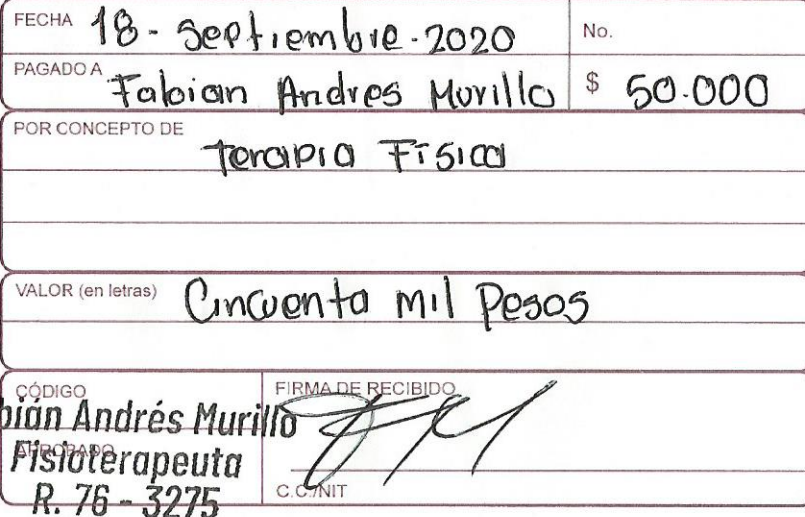 FECHA 18 - Septiembre - 2020 No.
PAGADO A Fabian Andres Murillo $ 50.000
POR CONCEPTO DE Terapia Física
VALOR (en letras) Cincuenta mil Pesos
CÓDIGO FIRMA DE RECIBIDO
bián Andrés Murillo
APROBADO
Fisioterapeuta
R. 76 - 3275 C.C./NIT